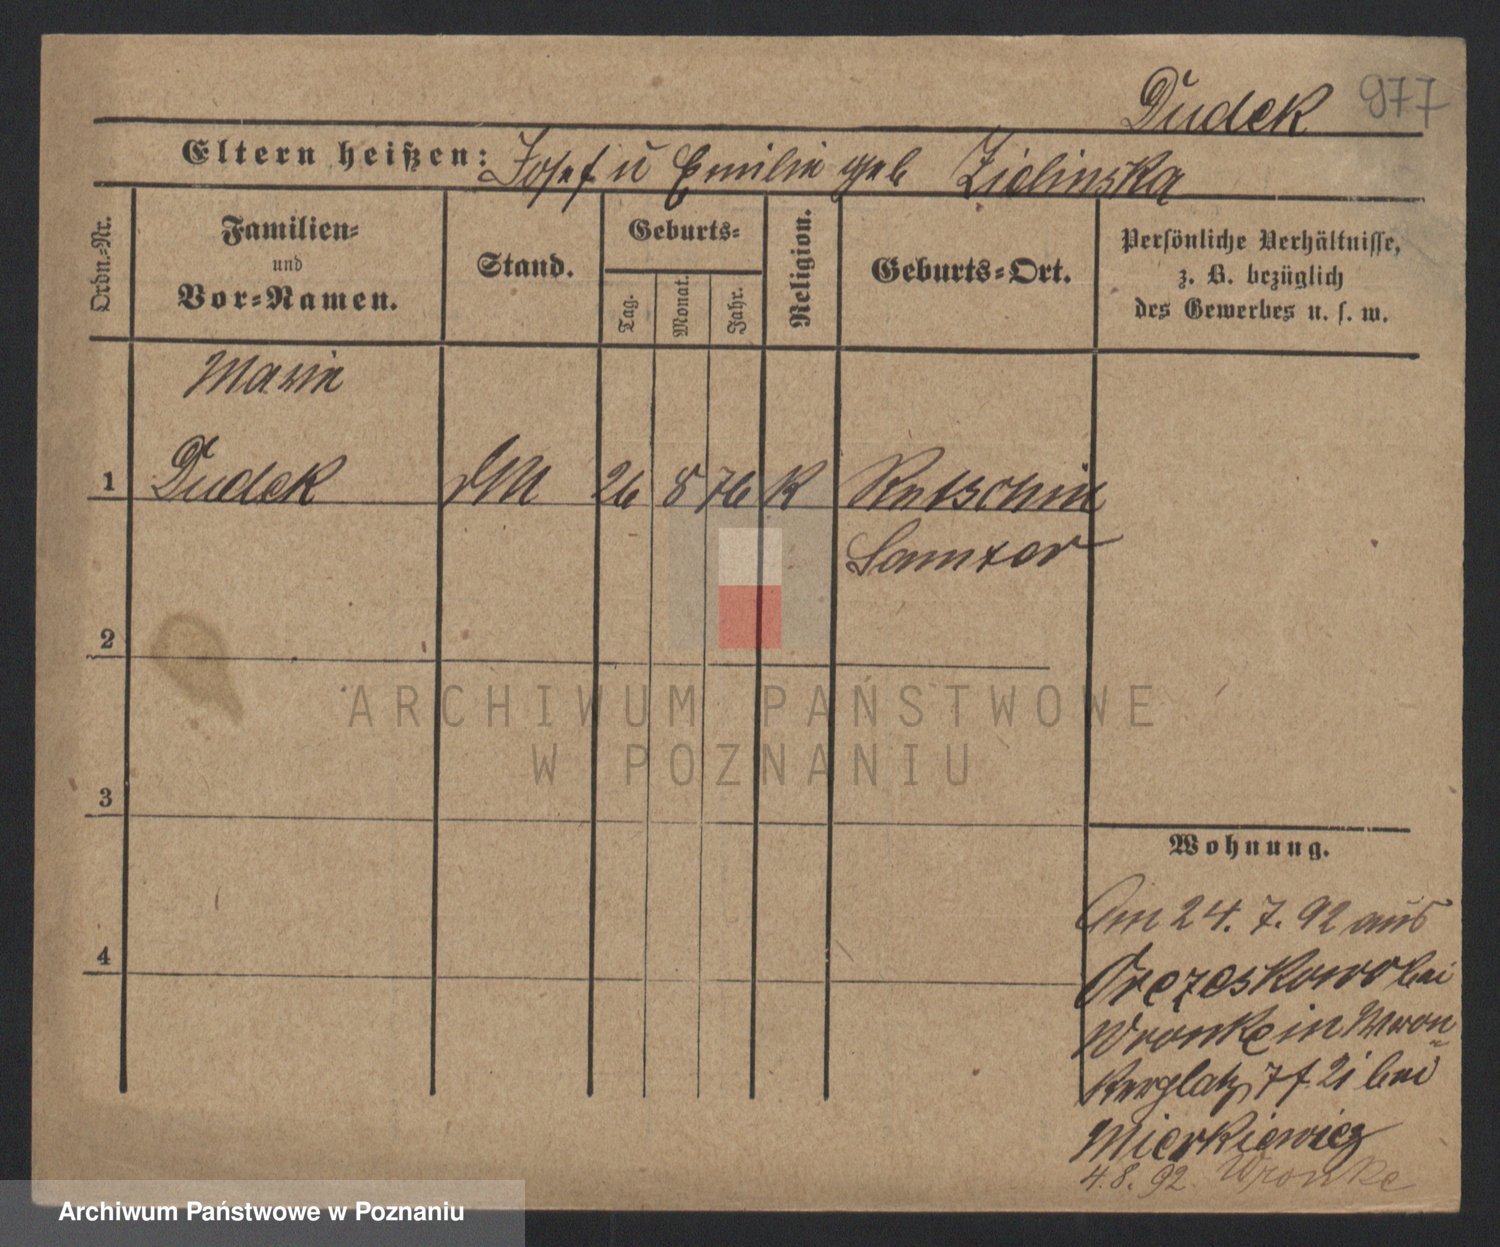 Dudek 977
Eltern heißen: Josef u Emilie geb Zielinska
Ordn.-Nr.
Familien-
und
Vor-Namen.
Stand.
Geburts-
Tag.
Monat.
Jahr.
Religion.
Geburts-Ort.
Persönliche Verhältnisse,
z. B. bezüglich
des Gewerbes u. s. w.
Marie
1 Dudek DM 26 8 76 K Retschin
Samter
2
ARCHIWUM PAŃSTWOWE
W POZNANIU
3
Wohnung.
Am 24. 7. 92 aus
Orezeskowo bei
4
Wronke in Wron
kerplatz 7 f. 2i bei
Mierkiewicz
4. 8. 92. Wronke
Archiwum Państwowe w Poznaniu